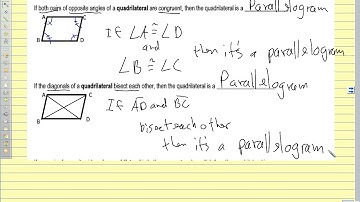 If both pairs of opposite angles of a quadrilateral are congruent, then the quadrilateral is a Parallelogram
A C
B D
If ∠A ≅ ∠D
and
∠B ≅ ∠C
then it's a parallelogram
If the diagonals of a quadrilateral bisect each other, then the quadrilateral is a Parallelogram
A C
B D
If AD and BC
bisect each other
then it's a parallelogram